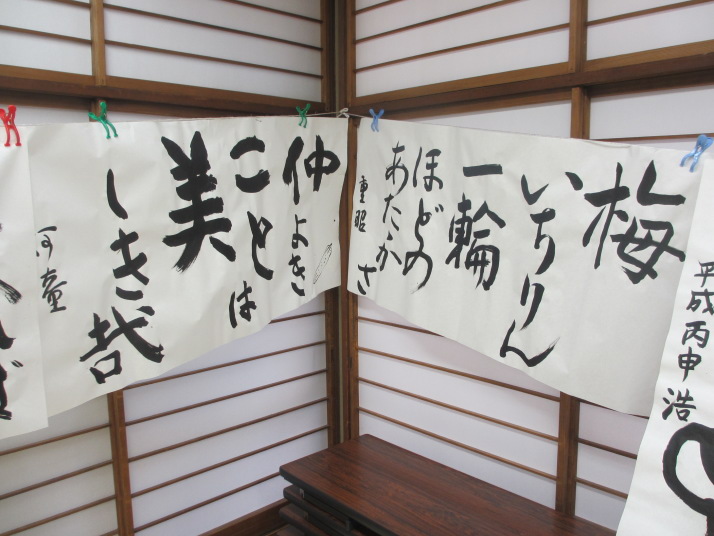 平成丙申 浩
梅
いちりん
一輪
ほどの
あたかさ
重昭
仲よき
ことは
美
しき哉
河童